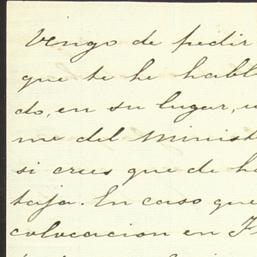 Vengo de pedir
que te he habl
do, en su lugar, u
me del minist
si crees que de ha
taja. En caso que
colocacion en F